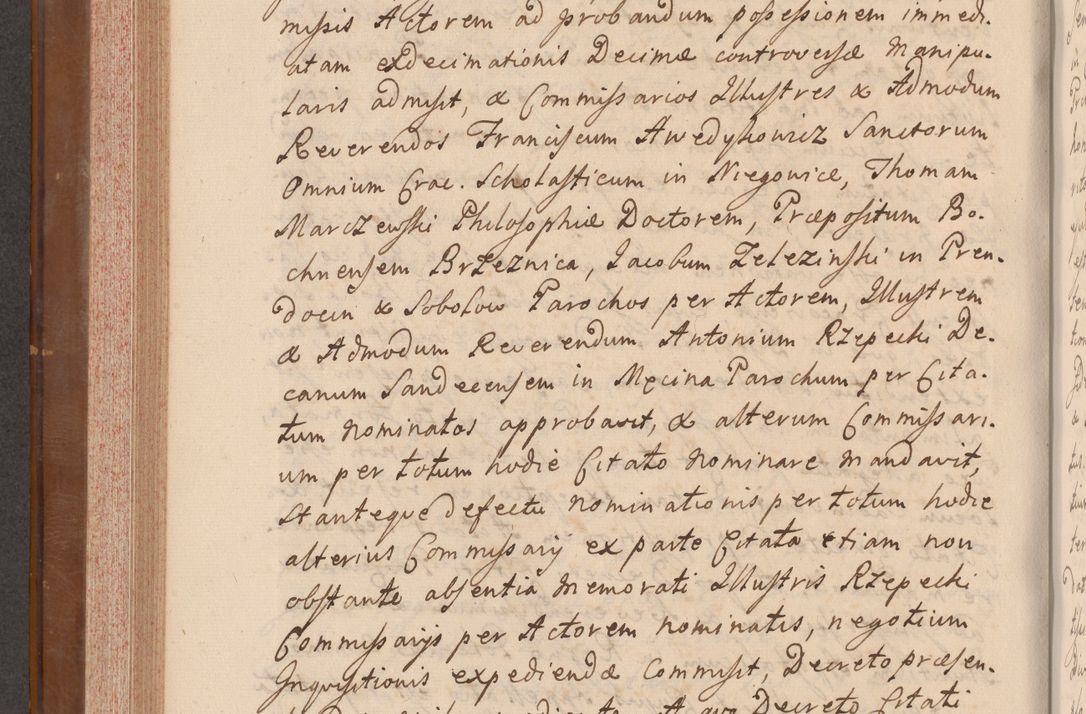 missis Actorem ad probandum possessionem immedi-
atam exdecimationis Decimæ controversæ Manipu-
laris admisit, & Commissarios Illustres & Admodum
Reverendos Franciscum Awedykowicz Sanctorum
Omnium Crac. Scholasticum in Niegowice, Thomam
Marczewski Philosophiæ Doctorem, Præpositum Bo-
chnensem Brzeznica, Jacobum Zelezinski in Pren-
docin & Sobolow Parochos per Actorem, Illustrem
& Admodum Reverendum Antonium Rzepecki De-
canum Sandecensem in Męcina Parochum per Cita-
tum nominatos approbavit, & alterum Commissari-
um per totum hodie Citato nominare mandavit,
stanteque defectu nominationis per totum hodie
alterius Commissarij ex parte Citata etiam non
obstante absentia memorati Illustris Rzepecki
Commissarijs per Actorem nominatis, negotium
Inquisitionis expediendæ commisit, Decreto præsen-
Decreto Citati